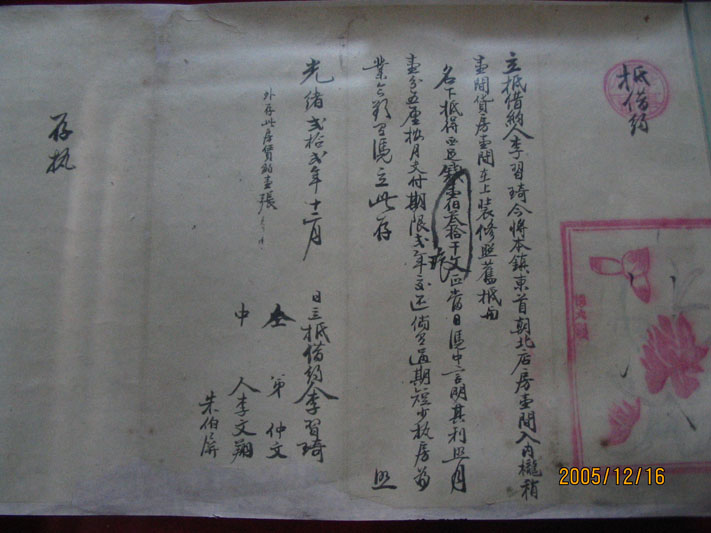 抵借約
立抵借約人李習琦今將本鎮東首朝北店房壹間入內櫳稍
壹間貸房壹間在上裝修照舊抵与
名下抵得 足錢壹佰叁拾千文正當日憑中言明其利照月
壹分五厘按月支付期限貳年交还倘若過期短少執房為
業 憑立此存 照
光緒貳拾貳年十二月 日立抵借約人李習琦
外存此房貸約壹張
仝 弟 仲文
中 人李文翔
朱伯屏
存执
2005/12/16